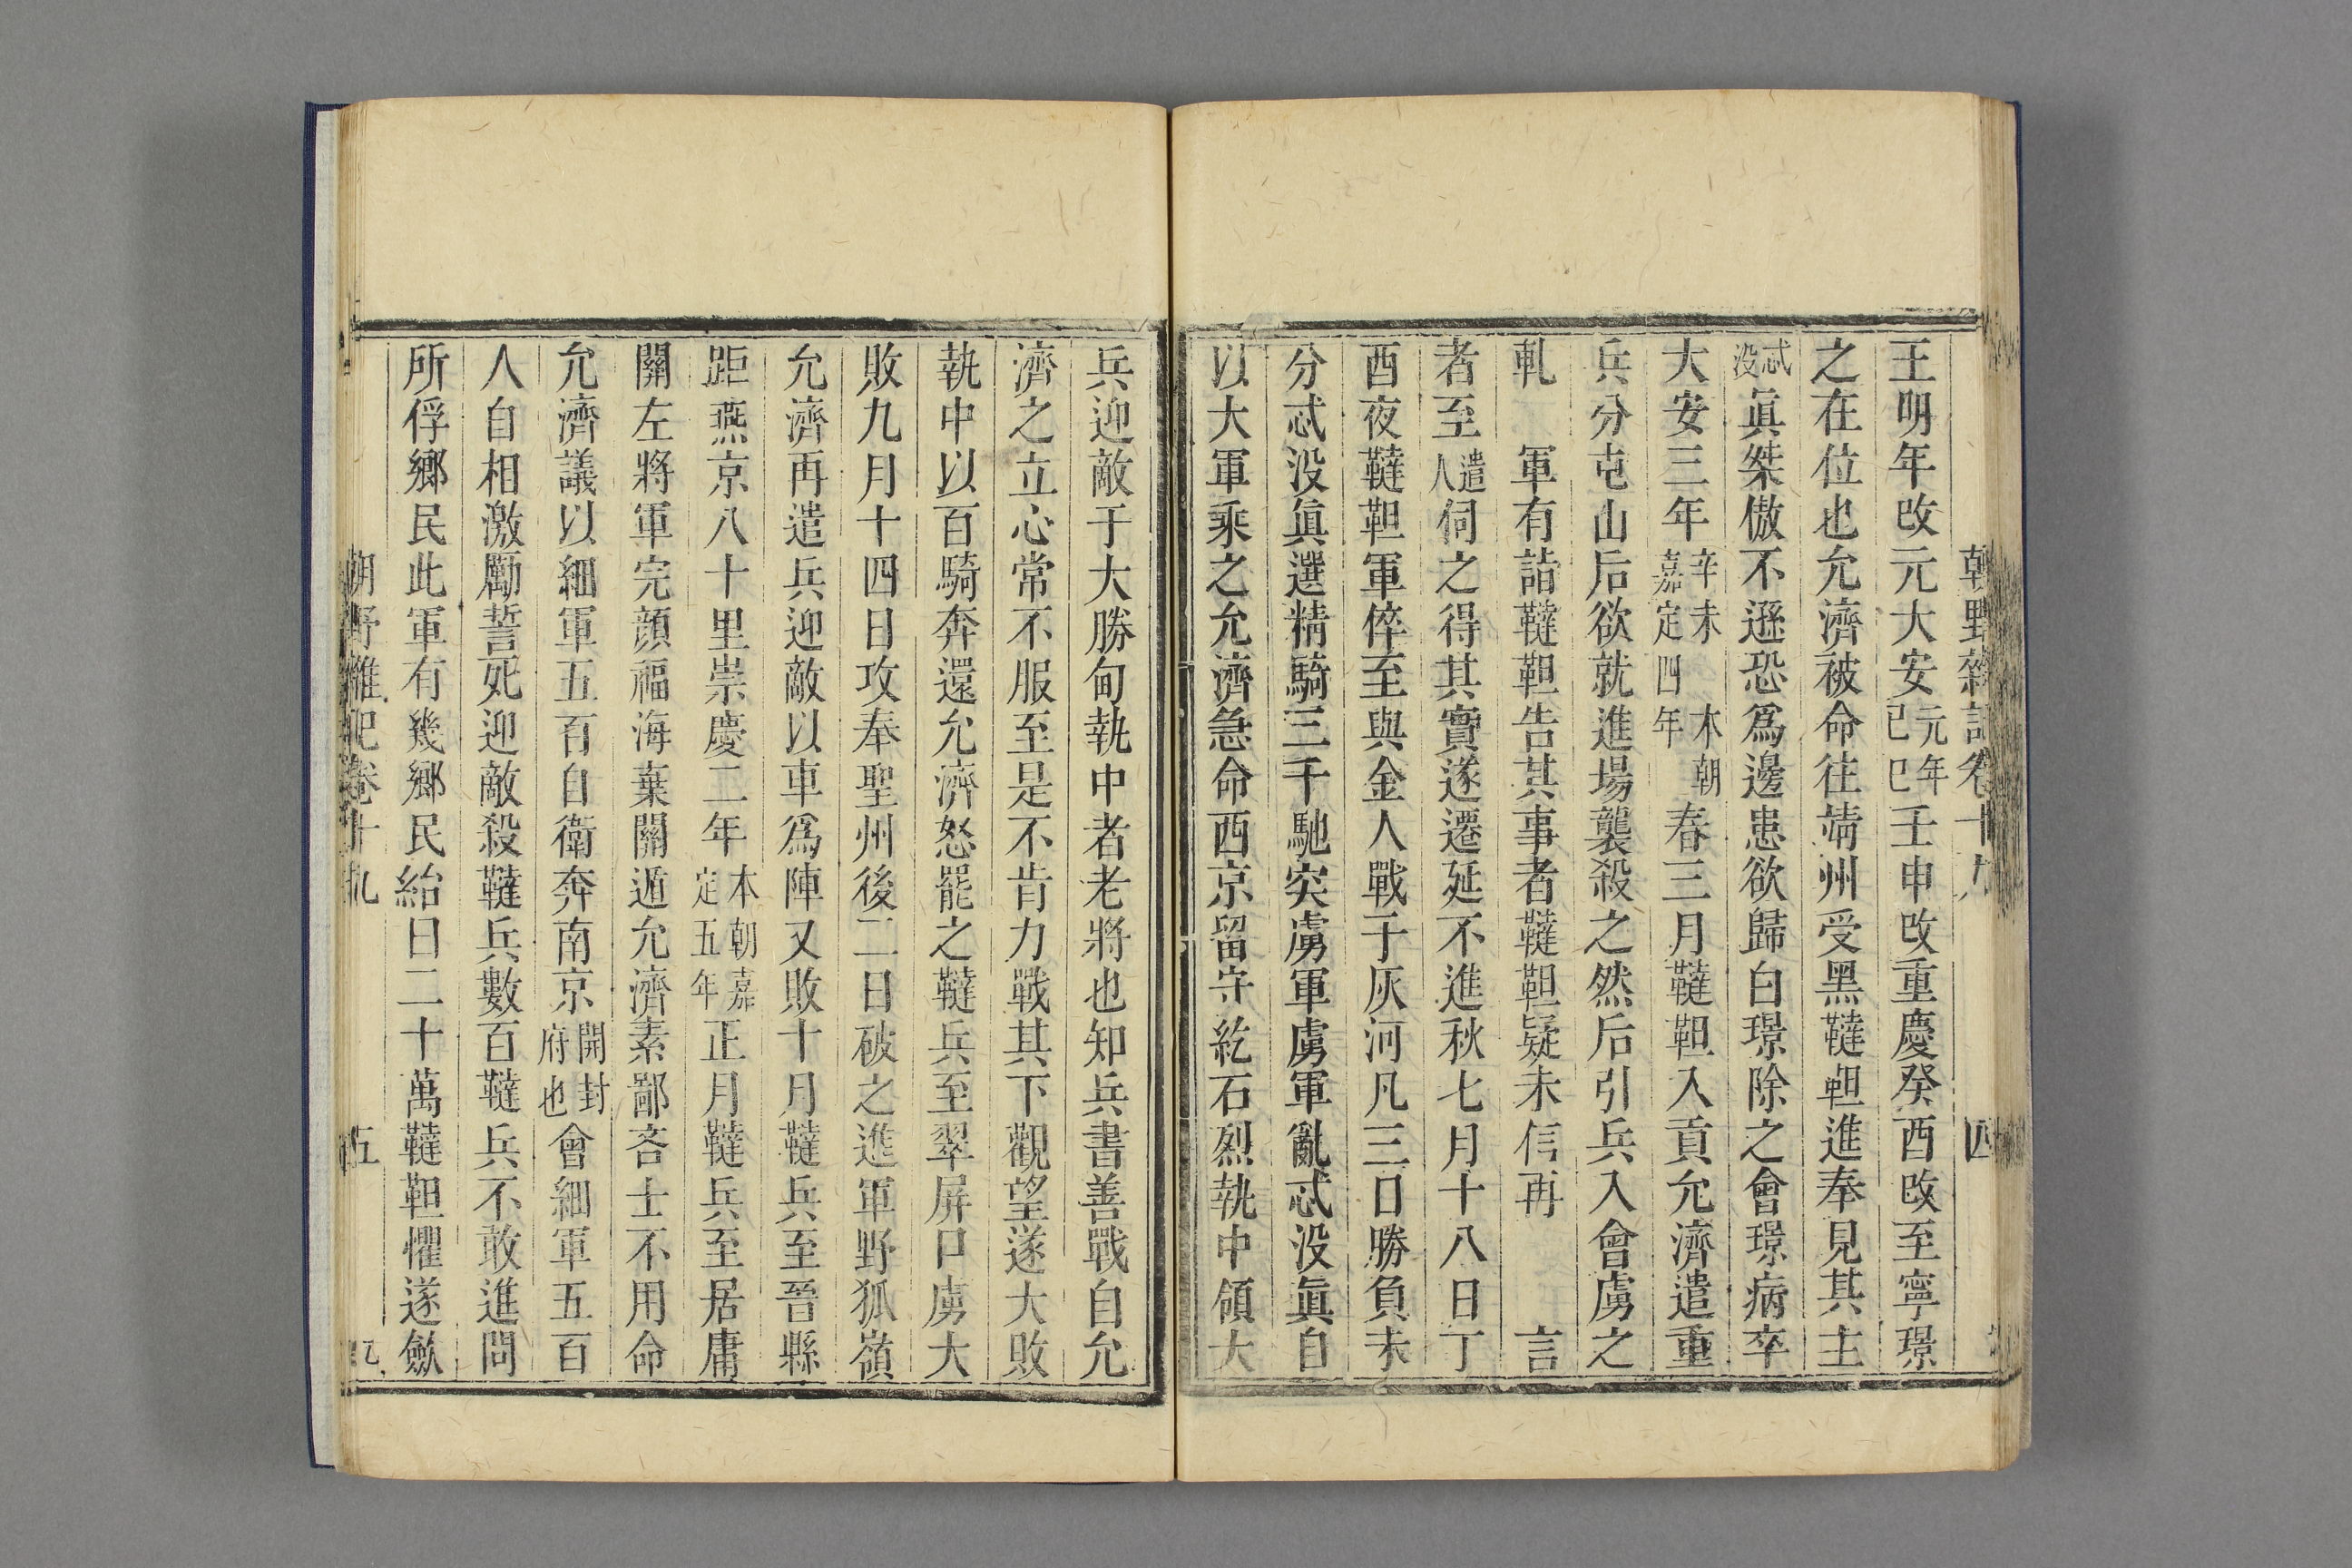 朝野雜記卷十九 四
王明年改元大安元年己巳壬申改重慶癸酉改至寧璟
之在位也允濟被命往靖州受黑韃靼進奉見其主
忒没眞桀傲不遜恐爲邊患欲歸白璟除之會璟病卒
大安三年辛未本朝嘉定四年春三月韃靼入貢允濟遣重
兵分屯山后欲就進場襲殺之然后引兵入會虜之
軋 軍有詣韃靼告其事者韃靼疑未信再 言
者至遣人伺之得其實遂遷延不進秋七月十八日丁
酉夜韃靼軍倅至與金人戰于灰河凡三日勝負未
分忒没眞選精騎三千馳突虜軍虜軍亂忒没眞自
以大軍乘之允濟急命西京留守紇石烈執中領大
兵迎敵于大勝甸執中者老將也知兵書善戰自允
濟之立心常不服至是不肯力戰其下觀望遂大敗
執中以百騎奔還允濟怒罷之韃兵至翠屏口虜大
敗九月十四日攻奉聖州後二日破之進軍野狐嶺
允濟再遣兵迎敵以車爲陣又敗十月韃兵至晉縣
距燕京八十里崇慶二年本朝嘉定五年正月韃兵至居庸
關左將軍完顏福海棄關遁允濟素鄙吝士不用命
允濟議以細軍五百自衛奔南京開封府也會細軍五百
人自相激勵誓死迎敵殺韃兵數百韃兵不敢進問
所俘鄉民此軍有幾鄉民紿曰二十萬韃靼懼遂斂
朝野雜記卷十九 五